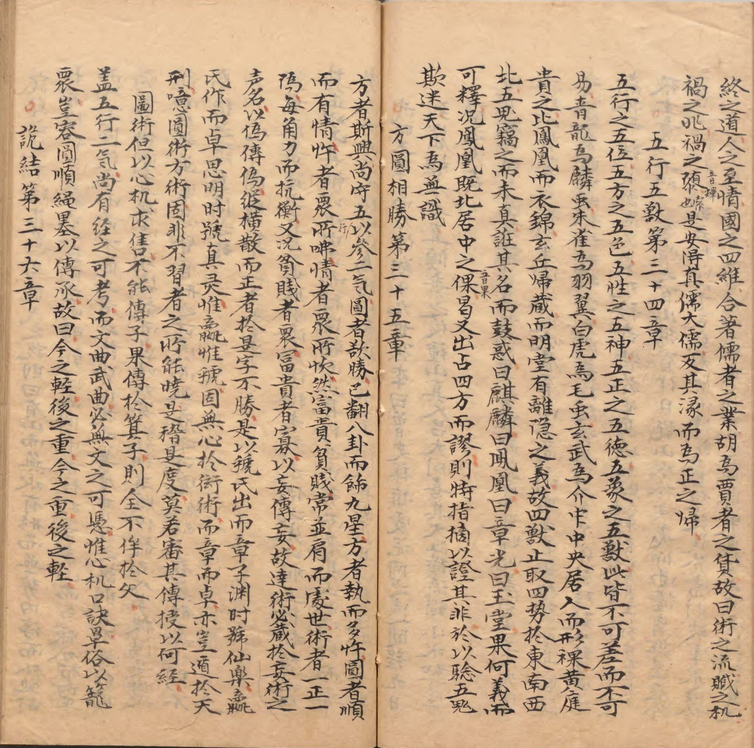 終之道人之至情國之四維合著儒者之業胡為賈者之貨故曰術之流賊之机
禍之兆禍之隳 是安得真儒大儒反其淥而為正之帰
五行五獸第三十四章
五行之五位五方之五色五性之五神五正之五德五象之五獸此皆不可差而不可
易青龍為麟虫朱雀為羽翼白虎為毛虫玄武為介虫中央居人而形裸黃庭
貴之比鳳凰而衣錦玄丘帰藏而明堂有離隐之義故四獸止取四势於東南西
北五鬼竊之而未真誑其名而鼓惑曰麒麟曰鳳凰曰章光曰玉堂果何義而
可釋况鳳凰既比居中之倮曷又出占四方而謬則特指摘以證其非於以驗五鬼
欺迷天下為無識
方圓相勝第三十五章
方者斯與尚守五行以參二氣圓者欲勝已翻八卦而飾九星方者執而多忤圓者順
而有情忤者衆所哂情者衆所忻然富貴貧賤常並肩而處世術者一正一
偽每角力而抗衡又况貧賤者衆富貴者寡以妄傳妄故達術必藏於妄術之
声名以偽傳偽縱橫散而正者於是乎不勝是以虢氏出而章子渊时號仙樂嬴
氏作而卓思明时號真灵惟嬴惟虢固無心於衒術而章而卓亦豈遁於天
刑噫圓術方術固非不習者之所能曉是稽是度莫若審其傳授以何經
圓術但以心机求售不能傳子果傳於箕子則全不侔於父
盖五行二氣尚有經之可考而文曲武曲必無文之可憑惟心机口訣覃俗以籠
衆豈容圓順繩墨以傳承故曰今之輕後之重今之重後之輕
說結第三十六章